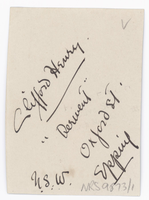 V
Clifford Henry.
"Derwent"
Oxford St.
Epping
N.S.W.
NRS9873/1